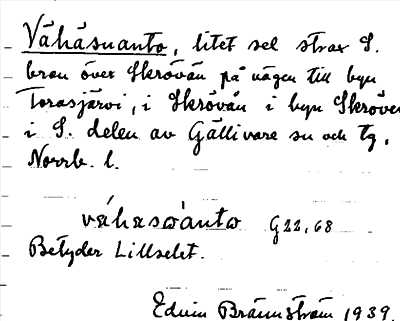 Vähäsuanto, litet sel strax S.
bron över Skröván på vägen till byn
Torasjärvi, i Skröván i byn Skröven
i S. delen av Gällivare sn och tg,
Norrb. l.
váhasωànto G22,68
Betyder Lillselet.
Edvin Brännström 1939.